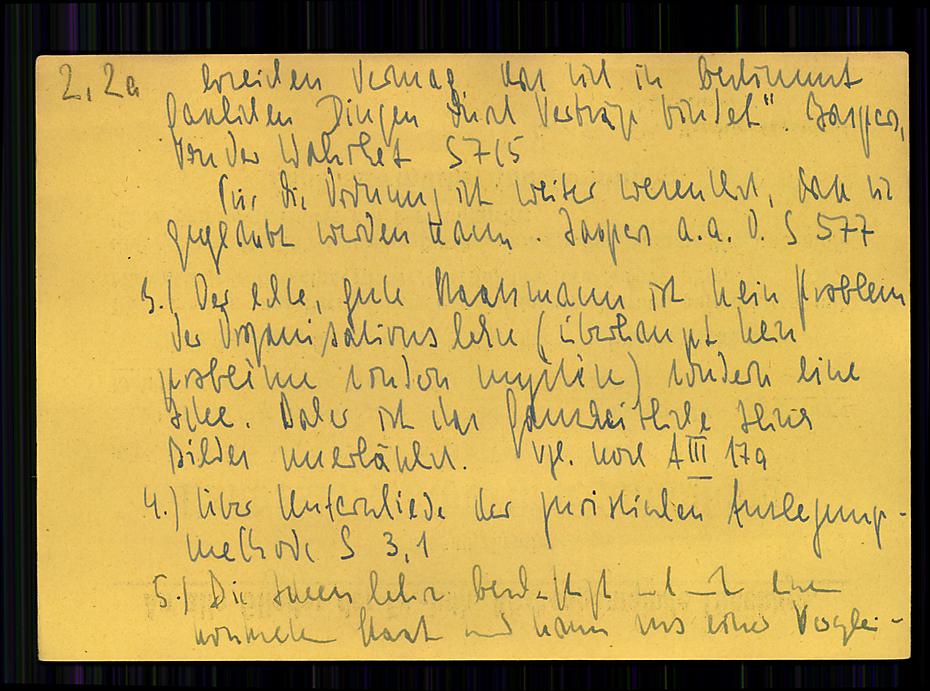 2,2a erreichen vermag, das sich in bestimmt
fasslichen Dingen durch Verträge bindet". Jaspers,
Von der Wahrheit S 715
Für die Ordnung ist weiter wesentlich, dass sie
geglaubt werden kann. Jaspers a.a.O. S 577
3.) Der echte, gute Staatsmann ist kein Problem
der Organisationslehre (überhaupt kein
problème sondern mystère) sondern eine
Idee. Daher ist das Ganzheitliche seines
Bildes unerlässlich. Vgl. noch A III 17a
4.) Über Unterschiede der juristischen Auslegungs-
methode S 3,1
5.) Die Ideenlehre beschäftigt sich mit dem
Staat und kann uns einer Verglei-